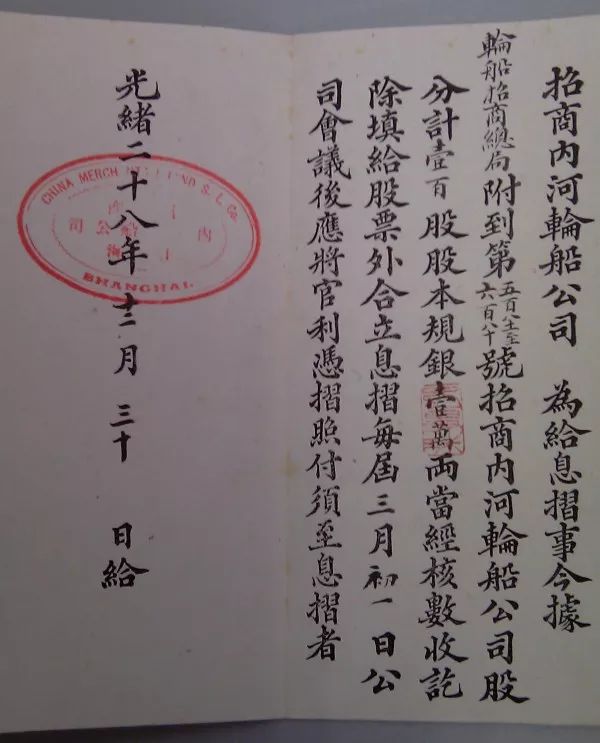 招商內河輪船公司 為給息摺事今據
輪船招商總局附到第五百八十一至六百八十號招商內河輪船公司股
分計壹百股股本規銀壹萬兩當經核數收訖
除填給股票外合立息摺每屆三月初一日公
司會議後應將官利憑摺照付須至息摺者
光緒二十八年十二月三十 日給
CHINA MERCH INLAND S. L. Co.
SHANGHAI.
內
公司